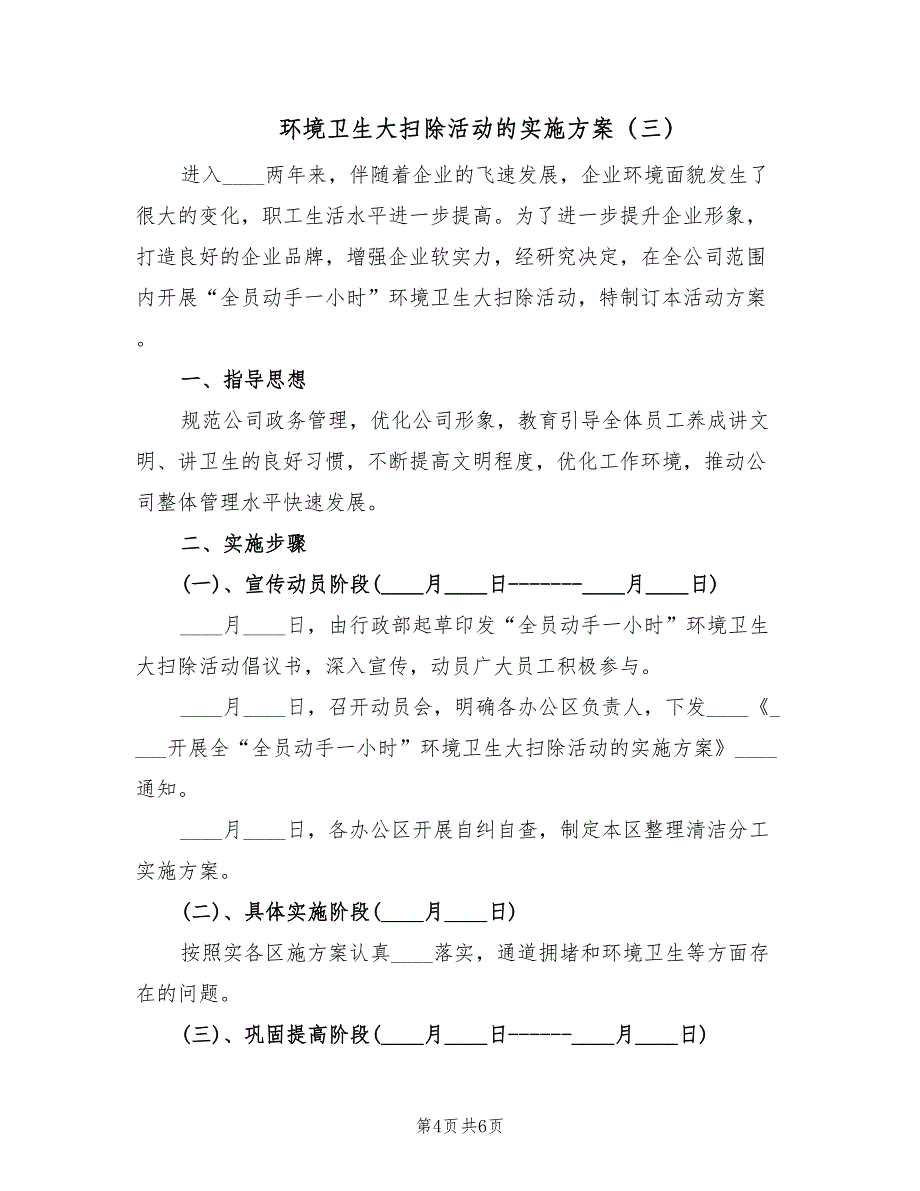 环境卫生大扫除活动的实施方案（三）
进入____两年来，伴随着企业的飞速发展，企业环境面貌发生了
很大的变化，职工生活水平进一步提高。为了进一步提升企业形象，
打造良好的企业品牌，增强企业软实力，经研究决定，在全公司范围
内开展“全员动手一小时”环境卫生大扫除活动，特制订本活动方案
。
一、指导思想
规范公司政务管理，优化公司形象，教育引导全体员工养成讲文
明、讲卫生的良好习惯，不断提高文明程度，优化工作环境，推动公
司整体管理水平快速发展。
二、实施步骤
(一)、宣传动员阶段(____月____日-------____月____日)
____月____日，由行政部起草印发“全员动手一小时”环境卫生
大扫除活动倡议书，深入宣传，动员广大员工积极参与。
____月____日，召开动员会，明确各办公区负责人，下发____《_
___开展全“全员动手一小时”环境卫生大扫除活动的实施方案》____
通知。
____月____日，各办公区开展自纠自查，制定本区整理清洁分工
实施方案。
(二)、具体实施阶段(____月____日)
按照实各区施方案认真____落实，通道拥堵和环境卫生等方面存
在的问题。
(三)、巩固提高阶段(____月____日------____月____日)
第4页共6页